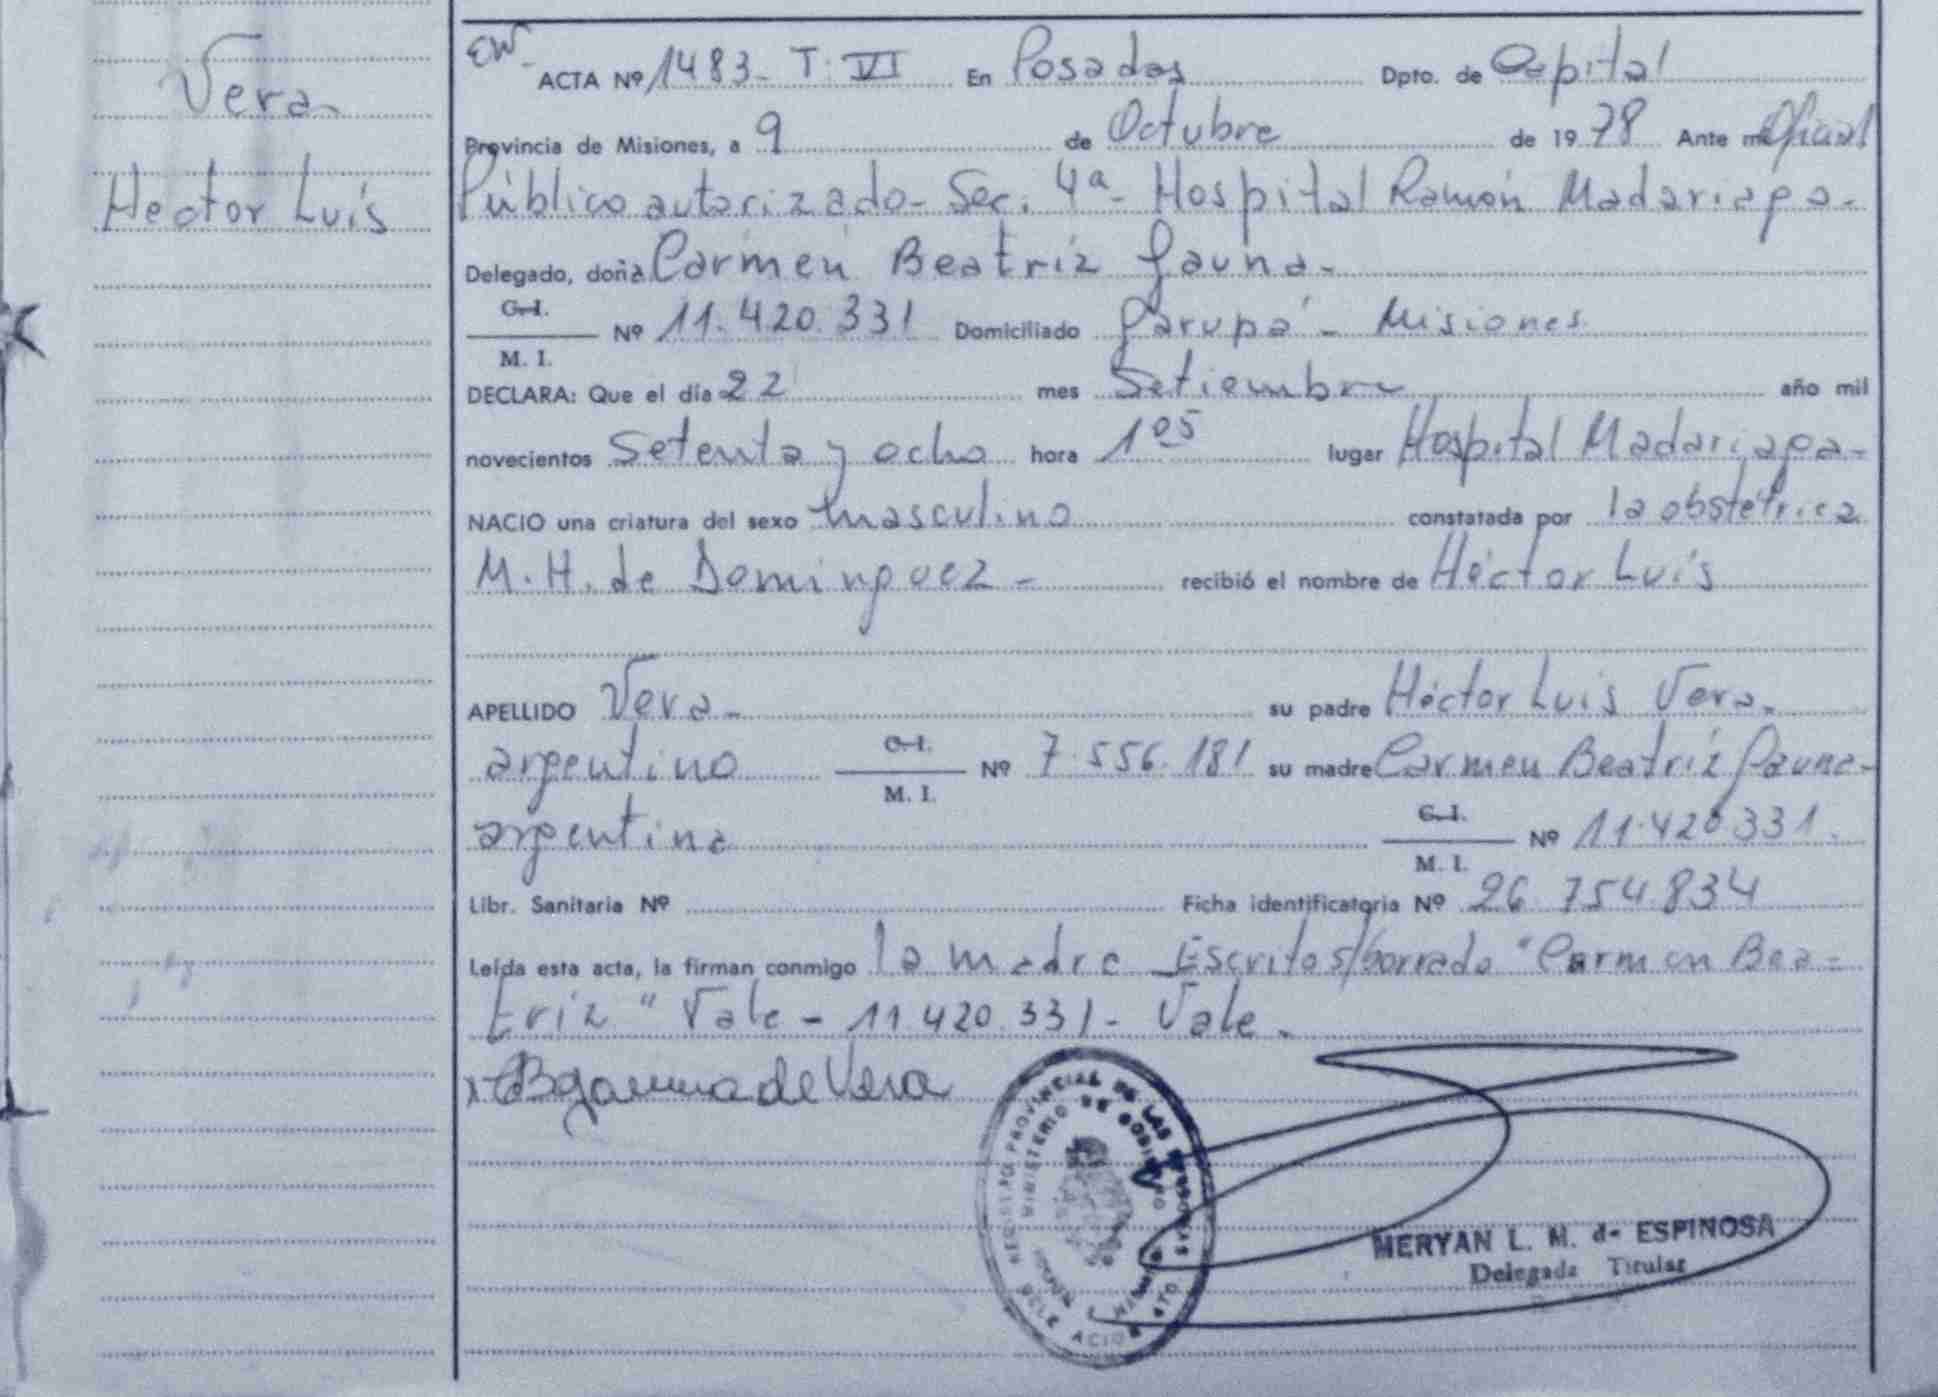 Vera-
Hector Luís
EW-
ACTA Nº 1483- T. VI En Posadas Dpto. de Capital
Provincia de Misiones, a 9 de Octubre de 1978 Ante mí Oficial
Público autorizado- Sec. 4ª- Hospital Ramón Madariaga-
Delegado, doña Carmen Beatríz Gauna-
C. I.
Nº 11.420.331 Domiciliado Garupá - Misiones
M. I.
DECLARA: Que el día 22 mes Setiembre año mil
novecientos Setenta y ocho hora 1 05 lugar Hospital Madariaga-
NACIO una criatura del sexo masculino constatada por la obstetrica
M. H. de Dominguez - recibió el nombre de Héctor Luís
APELLIDO Vera- su padre Héctor Luís Vera-
argentino C. I. M. I. Nº 7.556.181 su madre Carmen Beatríz Gauna-
argentina C. I. M. I. Nº 11.420.331.
Libr. Sanitaria Nº Ficha identificatoria Nº 26.754.834
Leída esta acta, la firman conmigo la madre - Escrito s/borrado "Carmen Bea-
triz" Vale - 11.420.331- Vale-
x CBGauna de Vera
REGISTRO PROVINCIAL DE LAS PERSONAS
MINISTERIO DE GOBIERNO
MERYAN L. M. de ESPINOSA
Delegada Titular